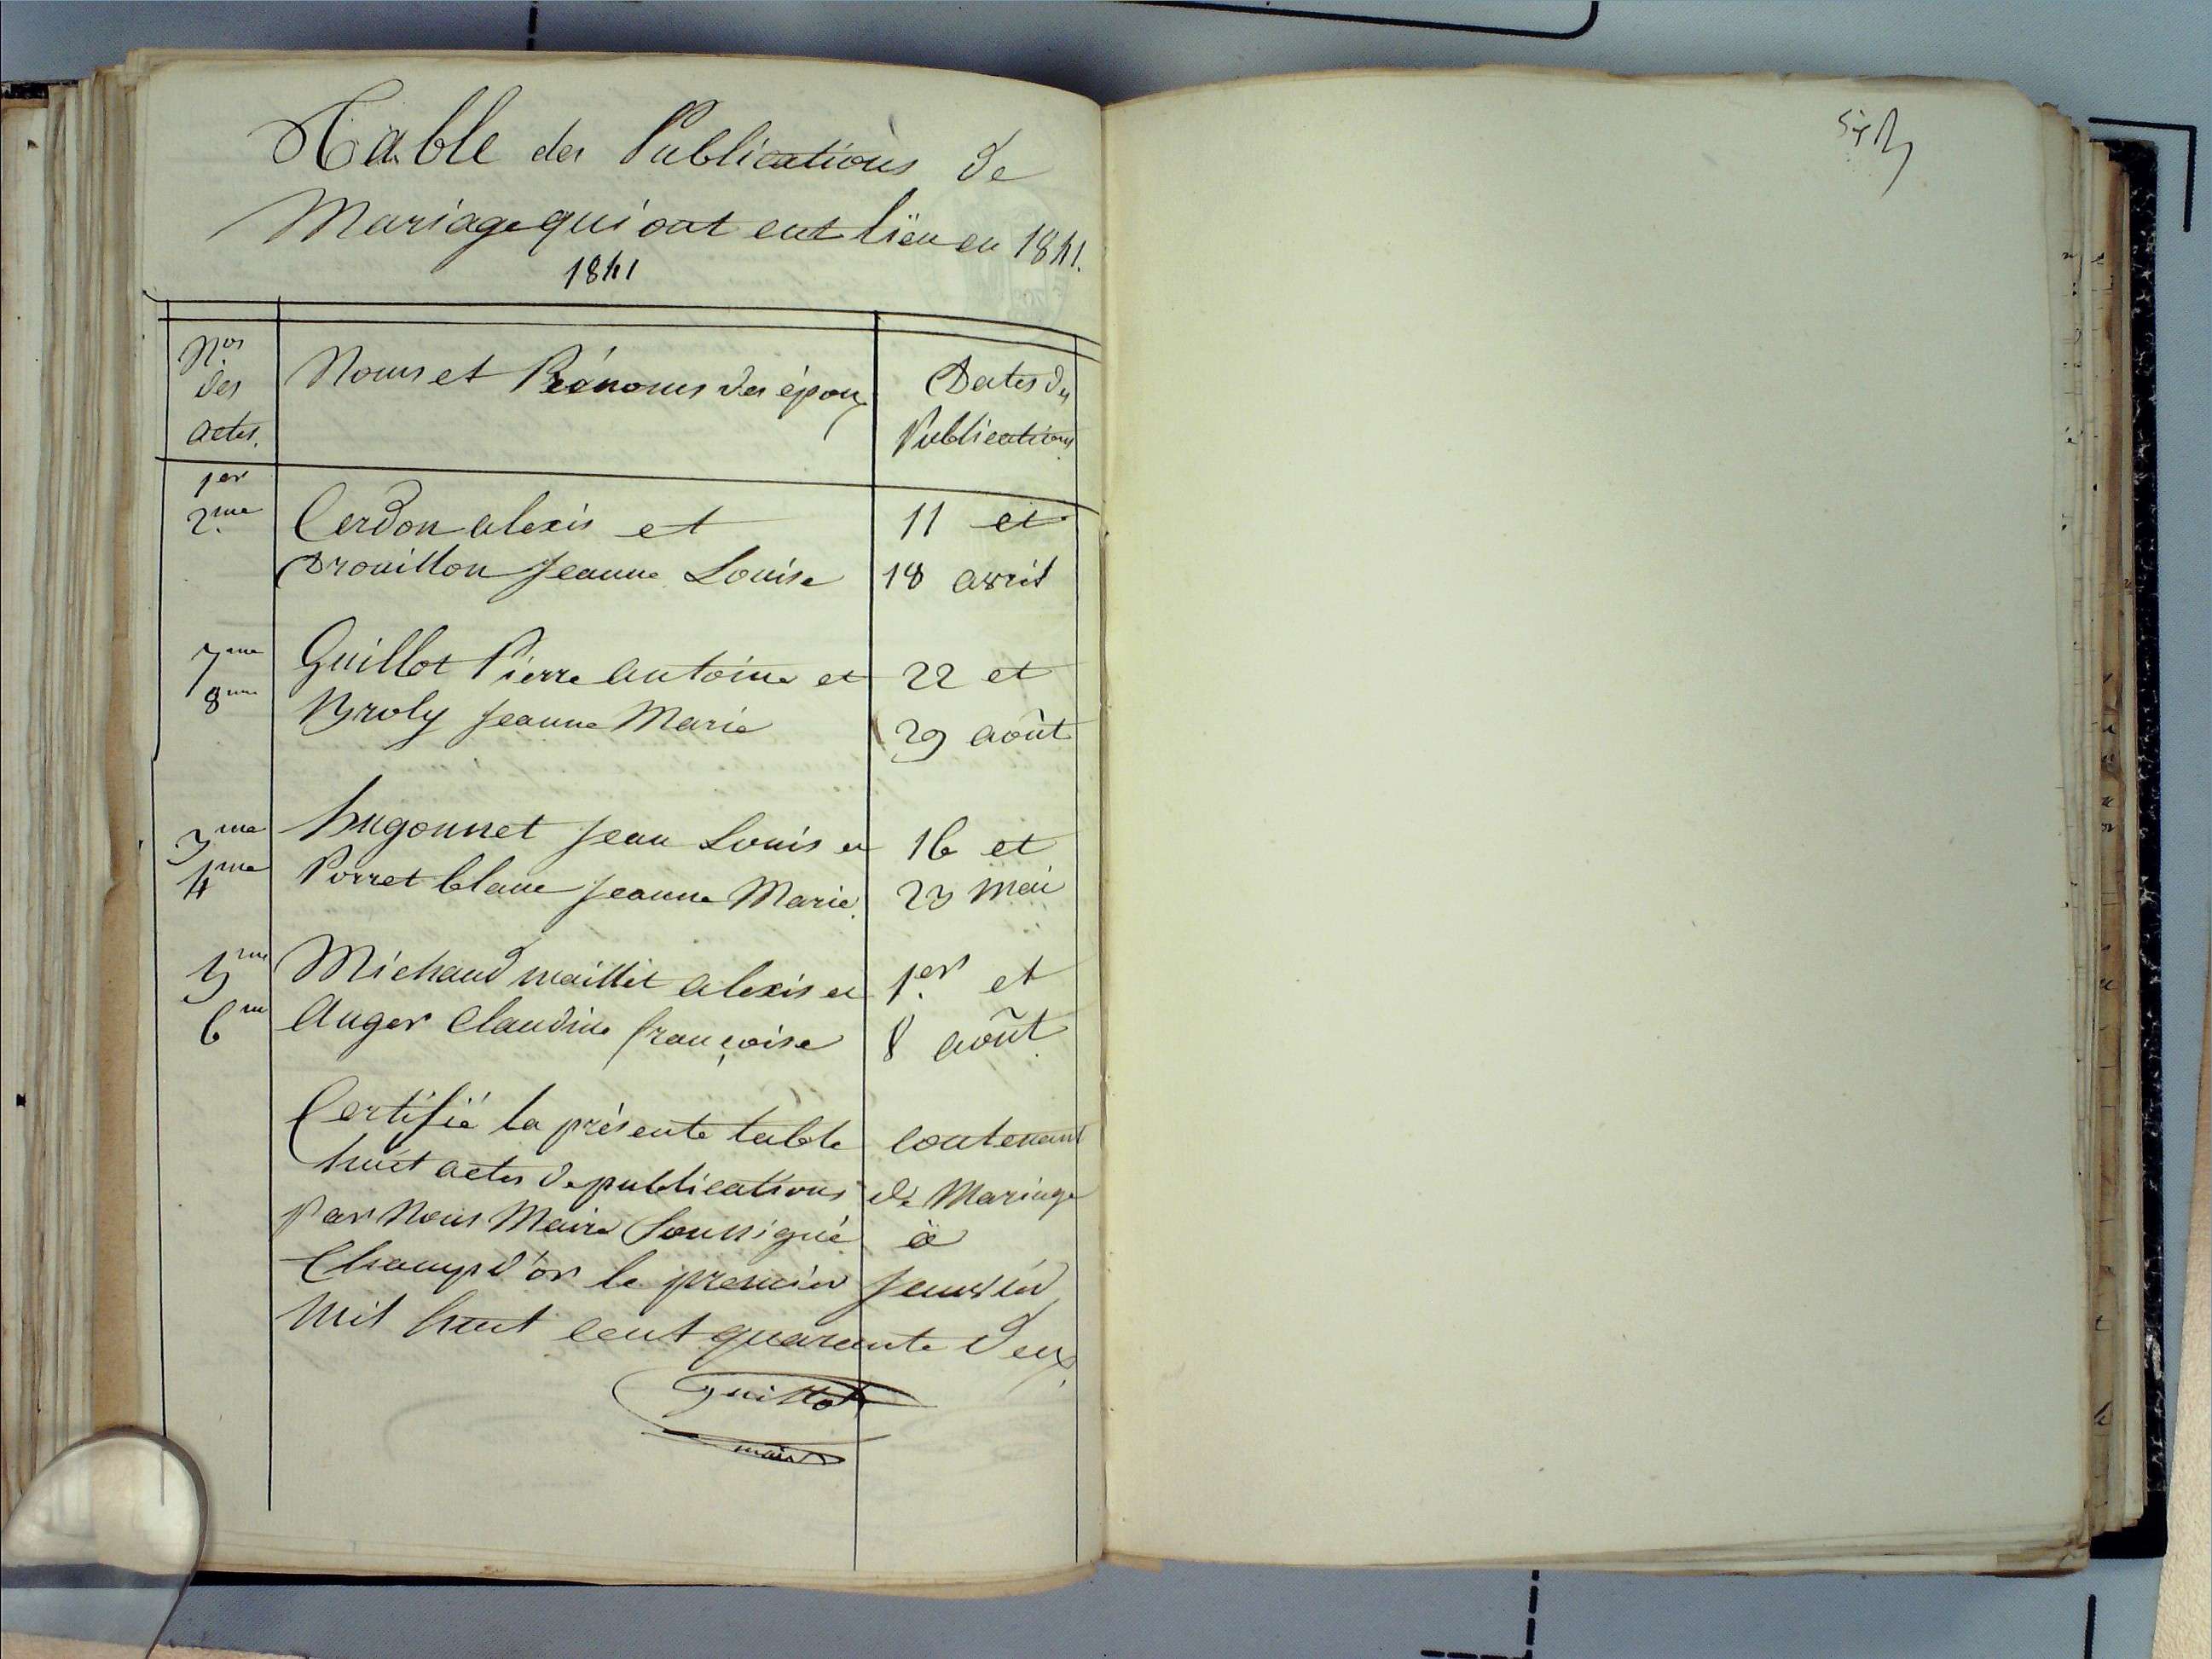 Table des Publications de
Mariage qui ont eut lieu en 1841.
1841
Nos des actes.
Noms et Prénoms des époux
Dates des Publications
1er
2me Cerdon alexis et 11 et
Drouillon Jeanne Louise 18 avril
7me Guillot Pierre antoine et 22 et
8me Broly Jeanne Marie 29 août
3me hugonnet Jean Louis et 16 et
4me Porret blanc Jeanne Marie. 23 mai
5me Michaud maillet alexis et 1er et
6me Auger Claudine françoise 8 août
Certifié la présente table contenant
huit actes de publications de Mariage
Par Nous Maire Soussigné à
Champd'or le premier Janvier
Mil huit cent quarante deux.
Guillot
maire